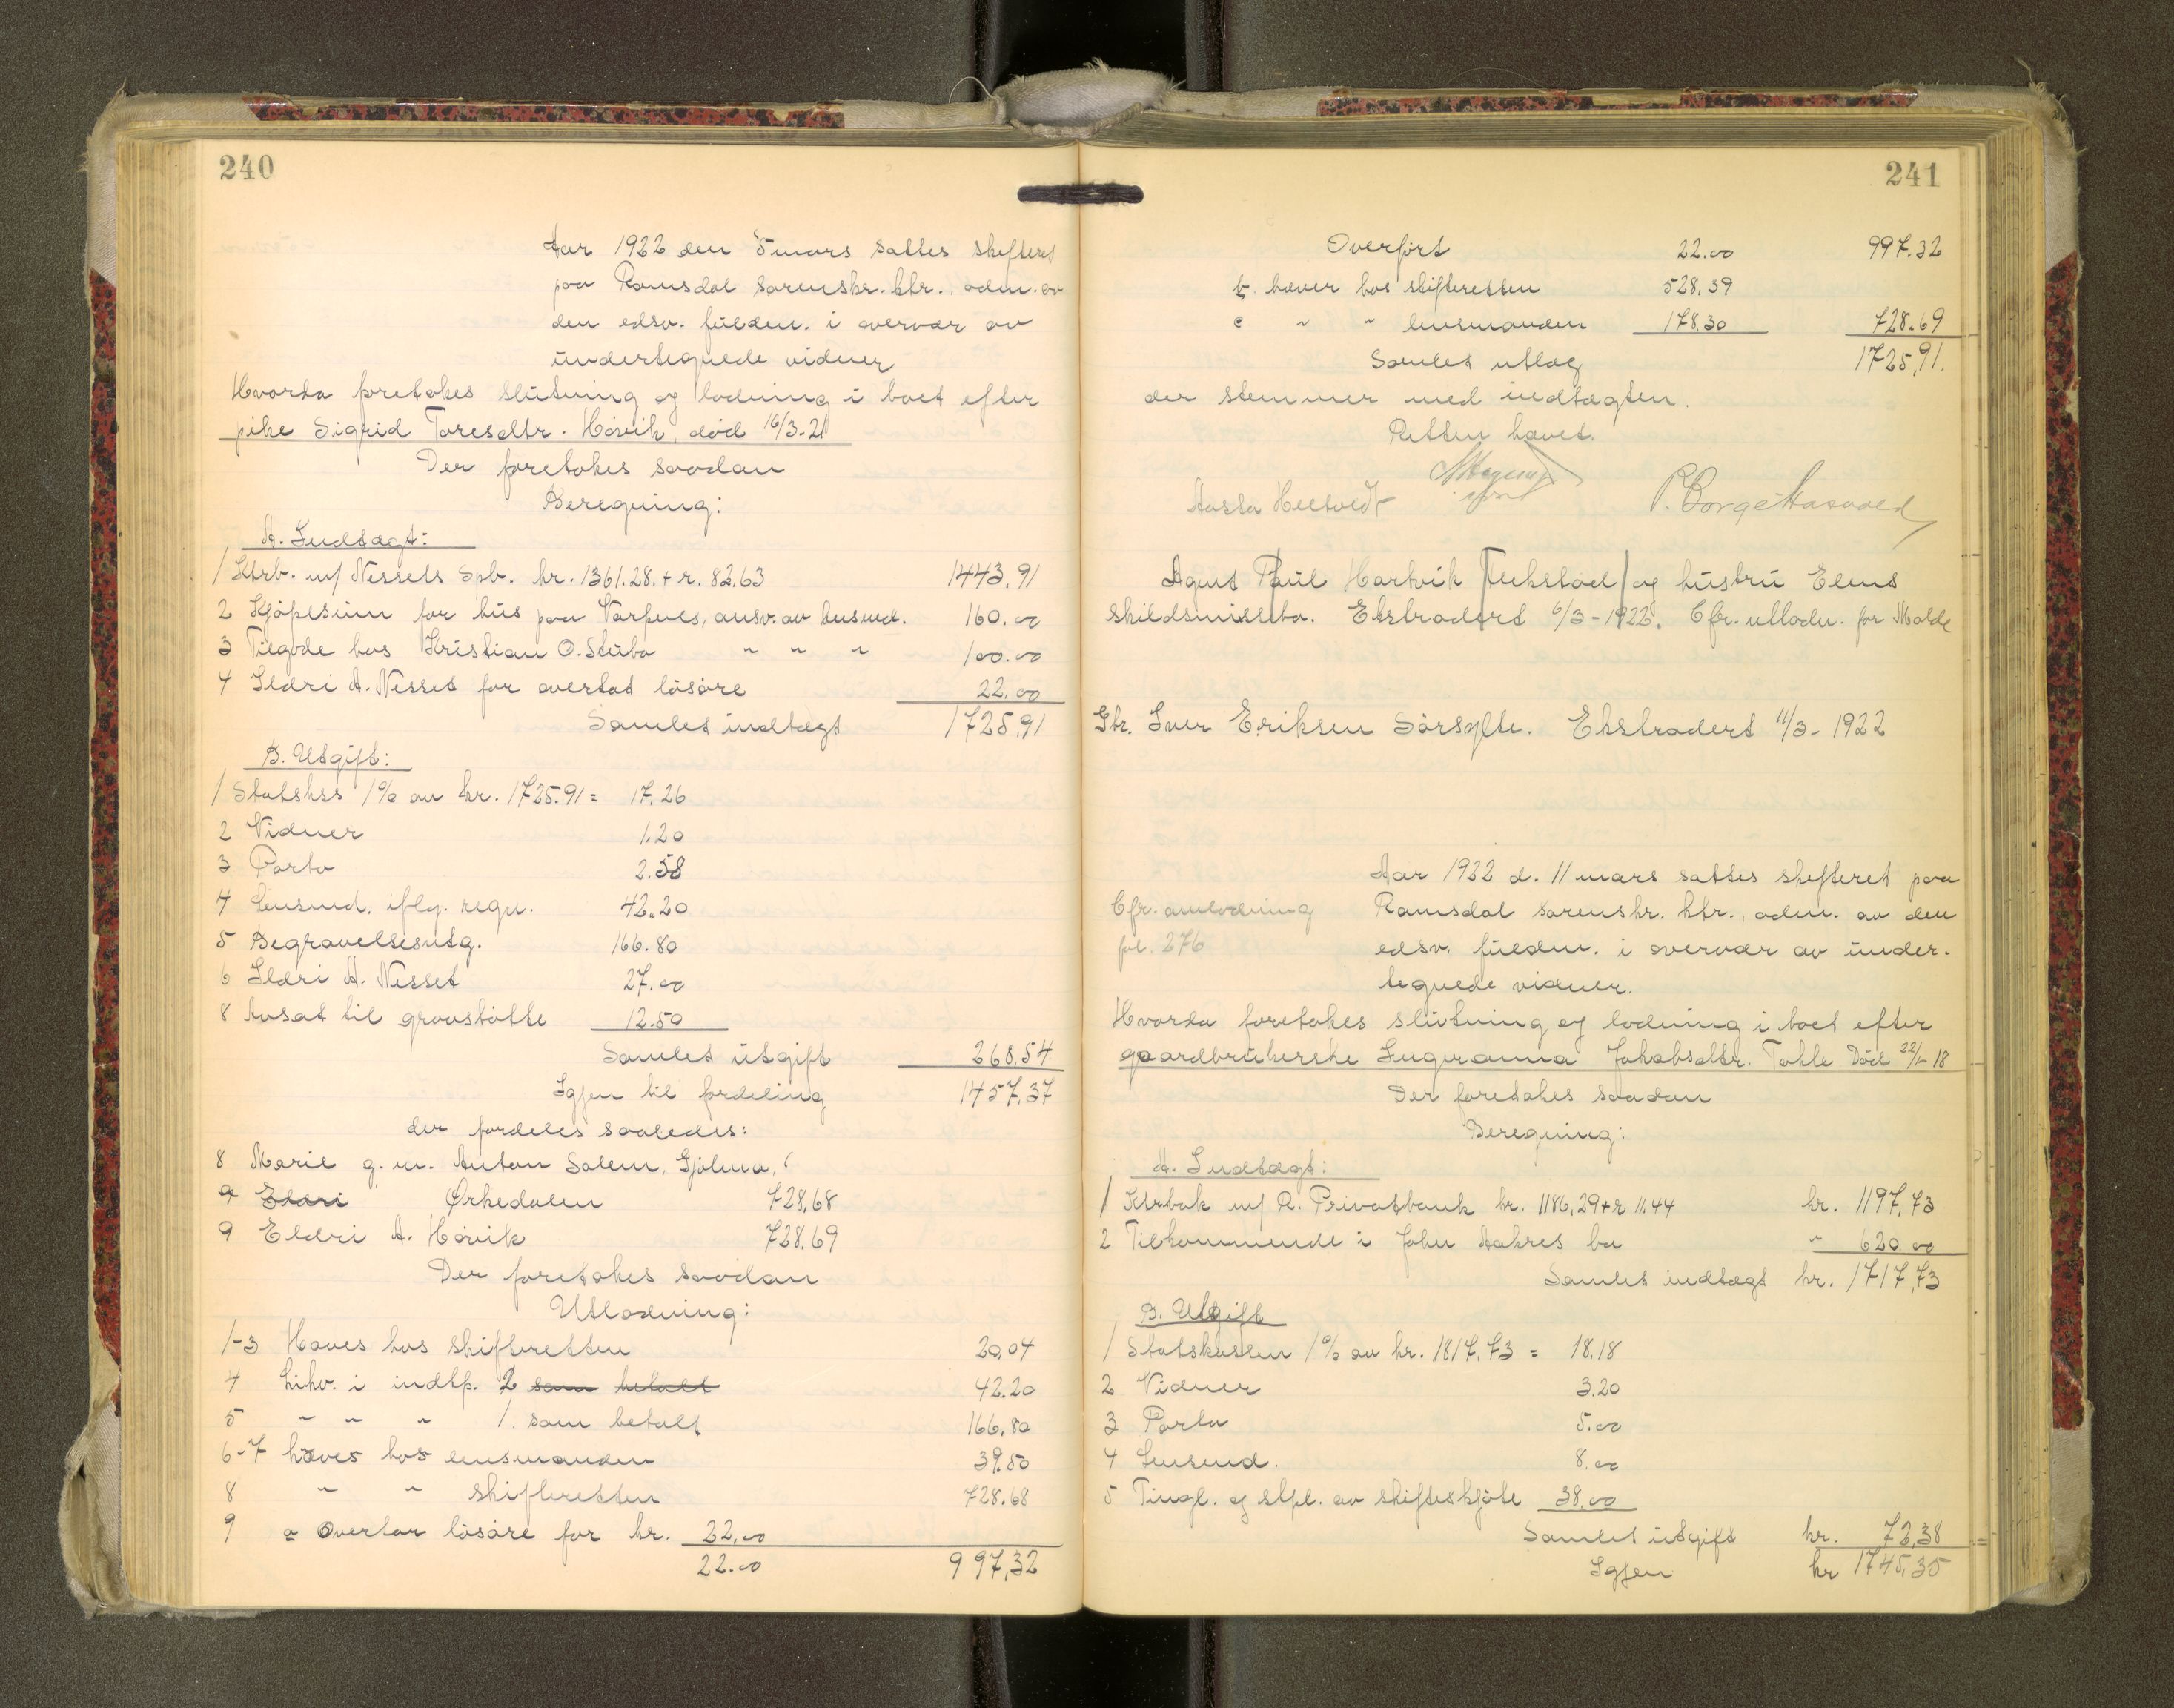 240
Aar 1922 den 5 mars sattes skifteret
paa Romsdal sorenskr. ktr., adm. av
den edsv. fuldm. i overvær av
undertegnede vidner
Hvorda foretokes slutning og lodning i boet efter
pike Sigrid Toresdtr. Hovik, død 16/3-21
Der foretokes saadan
Beregning:
A. Indtægt:
1 Ktrb. m/ Nessets Spb. kr. 1361.28. + r. 82,63 1443,91
2 Kjøpesum for hus paa Varpnes, ansv. av lensmd. 160.00
3 Tilgode hos Kristian O. Stubø " " " 100.00
4 Ildri A. Nesset for overtat løsøre 22.00
Samlet indtægt 1725,91
B. Utgift:
1 Statsks 1% av kr. 1725.91 = 17,26
2 Vidner 1.20
3 Porto 2.58
4 Lensmd. iflg. regn. 42.20
5 Begravelsesutg. 166.80
6 Ildri A. Nesset 27.00
8 Avsat til gravstøtte 12.50
Samlet utgift 268,54
Igjen til fordeling 1457,37
der fordeles saaledes:
8 Marie g. m. Anton Solem, Gjølma,
9 Eldri Ørkedalen 728,68
9 Eldri A. Hovik 728.69
Der foretokes saadan
Utlodning:
1-3 Haves hos skifteretten 20,04
4 Likv. i indtp. 2 som betalt 42.20
5 " " " 1. som betalt 166,80
6-7 hæves hos lensmanden 39.50
8 " " skifteretten 728.68
9 a Overtar løsøre for kr. 22,00
22.00 997,32
241
Overført 22.00 997.32
b. hæver hos skifteretten 528,39
c " " lensmanden 178,30 728.69
Samlet utlæg 1725,91.
der stemmer med indtægten.
Retten hævet.
Agnt Paul Hartvik Tuhstad og hustru Elens
skildsmissebo. Ekstradert 6/3-1922. Cfr. utlodn. for Molde
Gbr. Iver Eriksen Sørsylte. Ekstradert 11/3-1922
Aar 1922 d. 11 mars sattes skifteret paa
Cfr. omlodning Romsdal sorenskr. ktr., adm. av den
fol. 276 edsv. fuldm. i overvær av under-
tegnede vidner.
Hvorda foretokes slutning og lodning i boet efter
gaardbrukerske Ingeranna Jakobsdtr. Tokle Død 22/1-18
Der foretokes saadan
Beregning:
A. Indtægt:
1 Ktrbok m/ R. Privatbank kr. 1186,29 + r 11.44 kr. 1197,73
2 Tilkommende i John Aakres bo " 620.00
Samlet indtægt kr. 1717,73
B. Utgift
1 Statskassen 1% av kr. 1817,73 = 18,18
2 Vidner 3.20
3 Porto 5.00
4 Lensmd. 8.00
5 Tingl. og stpl. av skifteskjøte 38.00
Samlet utgift kr. 72,38
Igjen kr 1745,35